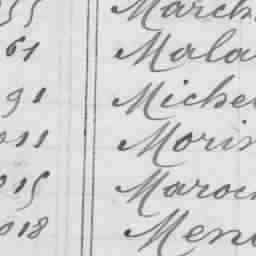 55 March
61 Mala
91 Miche
011 Morin
015 Maroc
018 Men